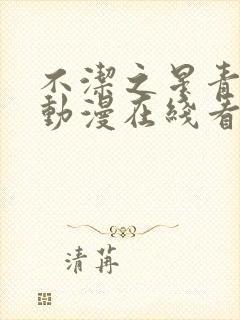 不潔之星青
動漫在綫看
清苒